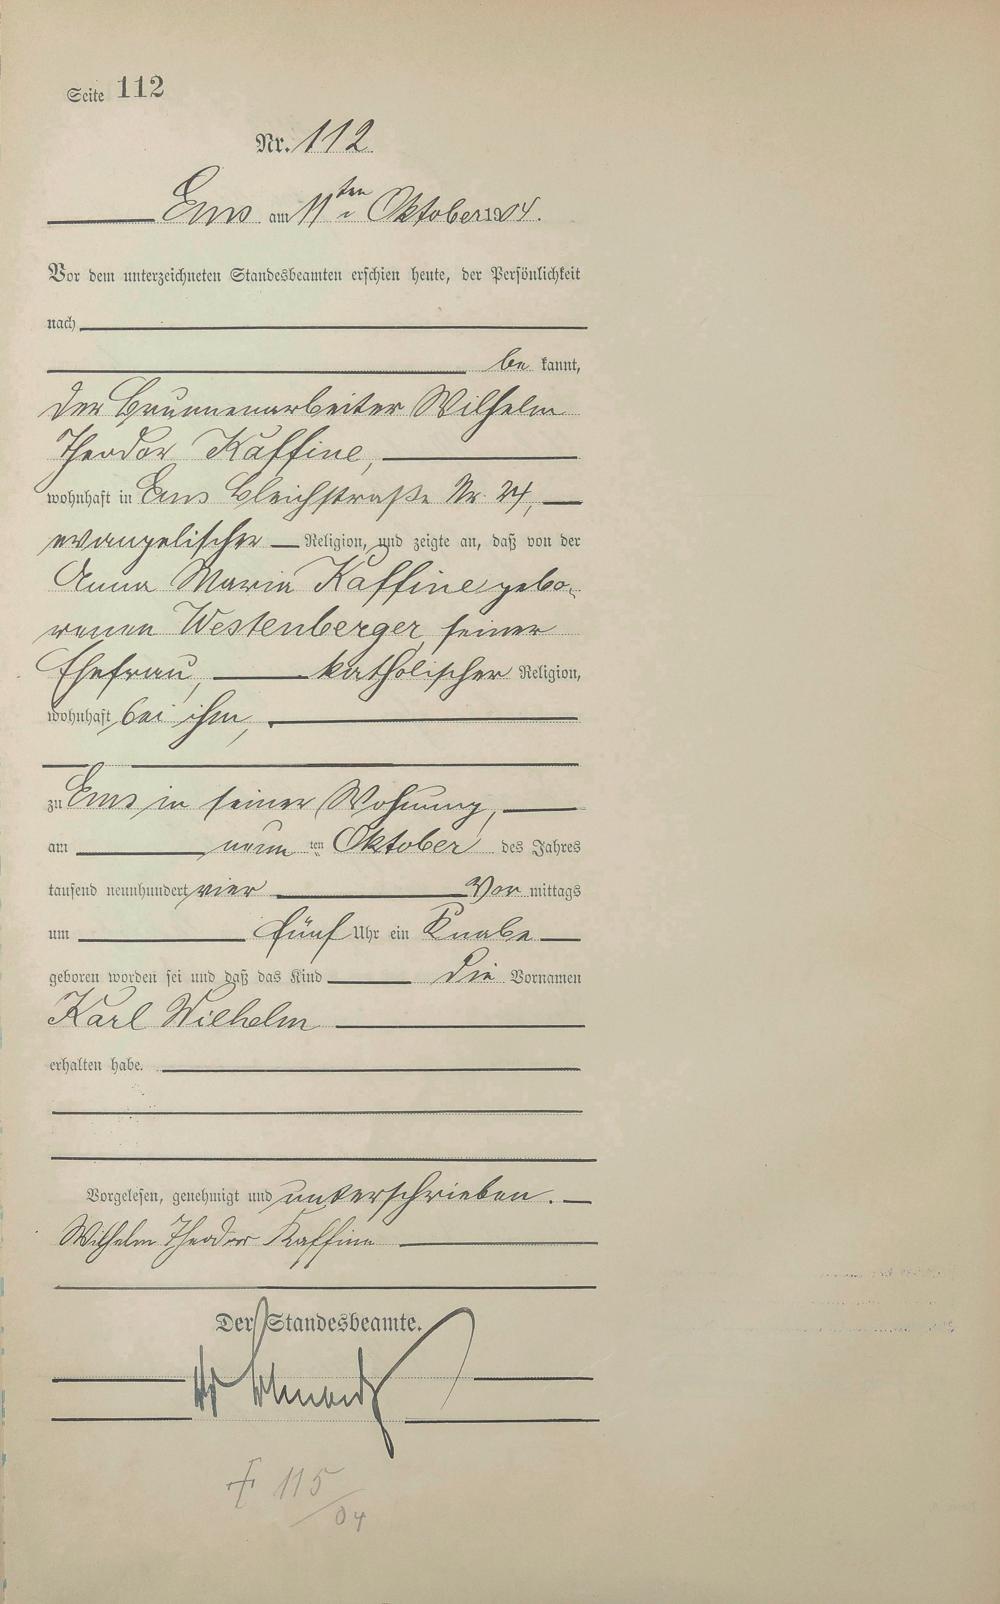 Seite 112
Nr. 112
Ems am 11ten Oktober 1904.
Vor dem unterzeichneten Standesbeamten erschien heute, der Persönlichkeit
nach
be kannt,
der Brunnenarbeiter Wilhelm
Theodor Kaffine,
wohnhaft in Ems Bleichstraße Nr. 24,
evangelischer Religion, und zeigte an, daß von der
Anna Maria Kaffine gebo-
renen Westenberger, seiner
Ehefrau, katholischer Religion,
wohnhaft bei ihm,
zu Ems in seiner Wohnung,
am neun ten Oktober des Jahres
tausend neunhundert vier Vor mittags
um fünf Uhr ein Knabe
geboren worden sei und daß das Kind die Vornamen
Karl Wilhelm
erhalten habe.
Vorgelesen, genehmigt und unterschrieben.
Wilhelm Theodor Kaffine
Der Standesbeamte.
† 115/04